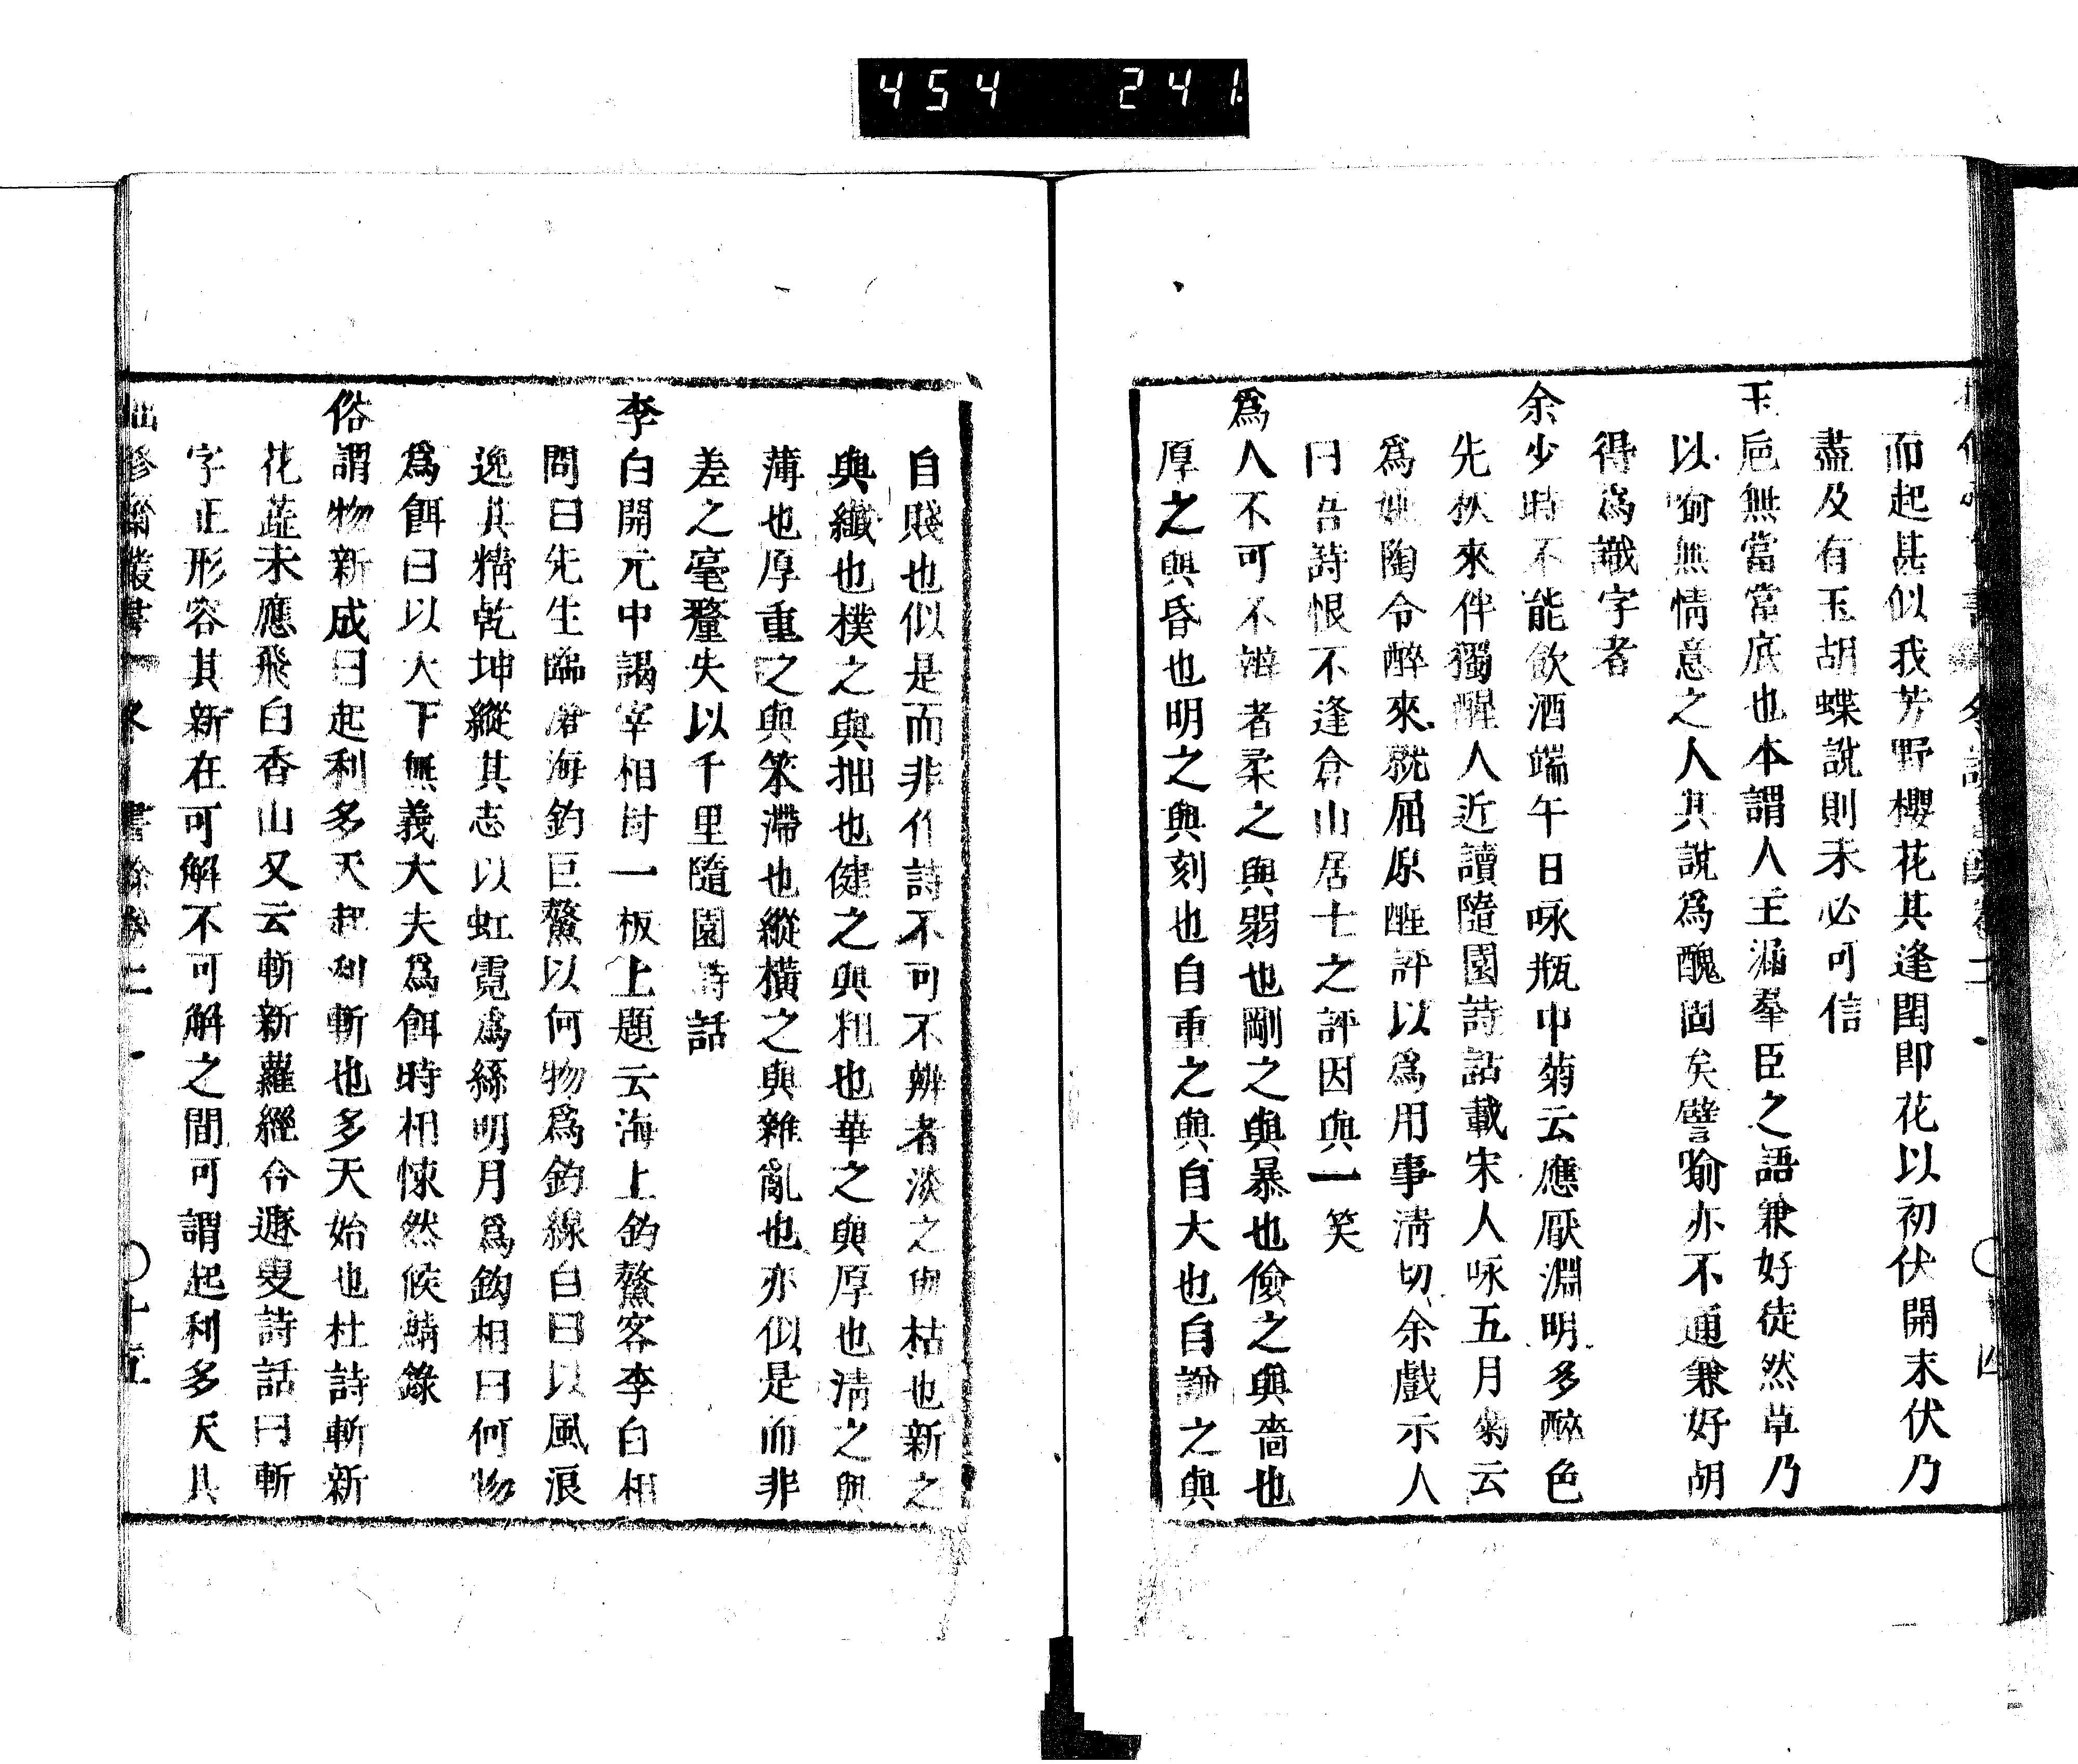 454 241
而起甚似我芳野櫻花其逢閏即花以初伏開末伏乃
盡及有玉胡蝶說則未必可信
玉巵無當當底也本謂人主漏羣臣之語兼好徒然草乃
以喻無情意之人其說爲醜固矣譬喻亦不通兼好胡
得爲識字者
余少時不能飲酒端午日咏瓶中菊云應厭淵明多醉色
先秋來伴獨醒人近讀隨園詩話載宋人咏五月菊云
爲嫌陶令醉來就屈原醒評以爲用事淸切余戲示人
曰吾詩恨不逢倉山居士之評因與一笑
爲人不可不辨者柔之與弱也剛之與暴也儉之與嗇也
厚之與昏也明之與刻也自重之與自大也自謙之與
自賤也似是而非作詩不可不辨者淡之與枯也新之
與纖也樸之與拙也健之與粗也華之與厚也淸之與
薄也厚重之與笨滯也縱橫之與雜亂也亦似是而非
差之毫釐失以千里隨園詩話
李白開元中謁宰相封一板上題云海上釣鰲客李白相
問曰先生臨滄海釣巨鰲以何物爲釣線白曰以風浪
逸其精乾坤縱其志以虹霓爲絲明月爲鈎相曰何物
爲餌曰以天下無義大夫爲餌時相悚然候鯖錄
俗謂物新成曰起利多天起利斬也多天始也杜詩斬新
花蕋未應飛白香山又云斬新蘿經合遯叟詩話曰斬
字正形容其新在可解不可解之間可謂起利多天其
拙修齋叢書 書餘卷二 〇十五